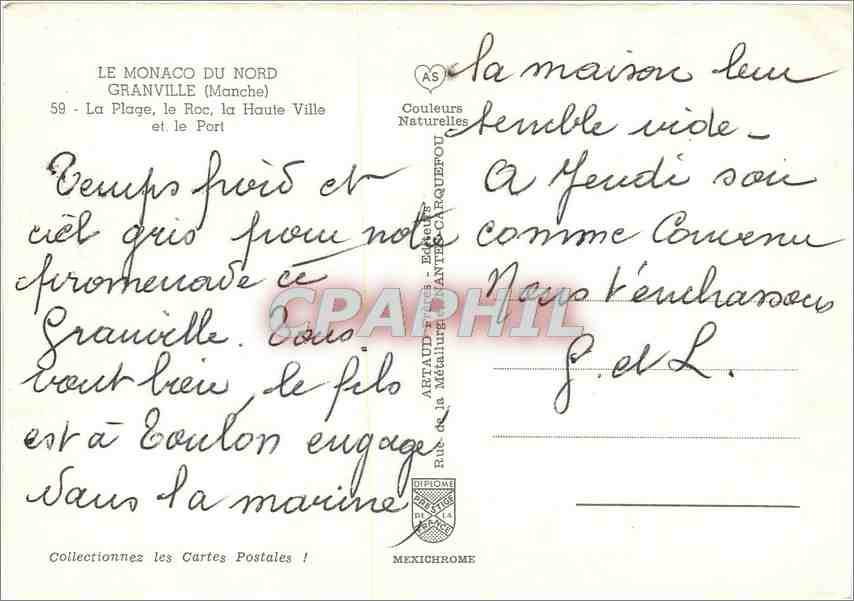 LE MONACO DU NORD
GRANVILLE (Manche)
59 - La Plage, le Roc, la Haute Ville
et le Port
Temps froid et
ciel gris pour notre
promenade à
Granville. Tous
vont bien, le fils
est à Toulon engagé
dans la marine
la maison leur
semble vide -
A Jeudi soir
comme convenu
Nous t'embrassons
G. et L.
AS
Couleurs
Naturelles
ARTAUD Frères - Editeurs
Rue de la Métallurgie NANTES-CARQUEFOU
CPAPHIL
DIPLOME
PRESTIGE
DE LA
FRANCE
Collectionnez les Cartes Postales !
MEXICHROME